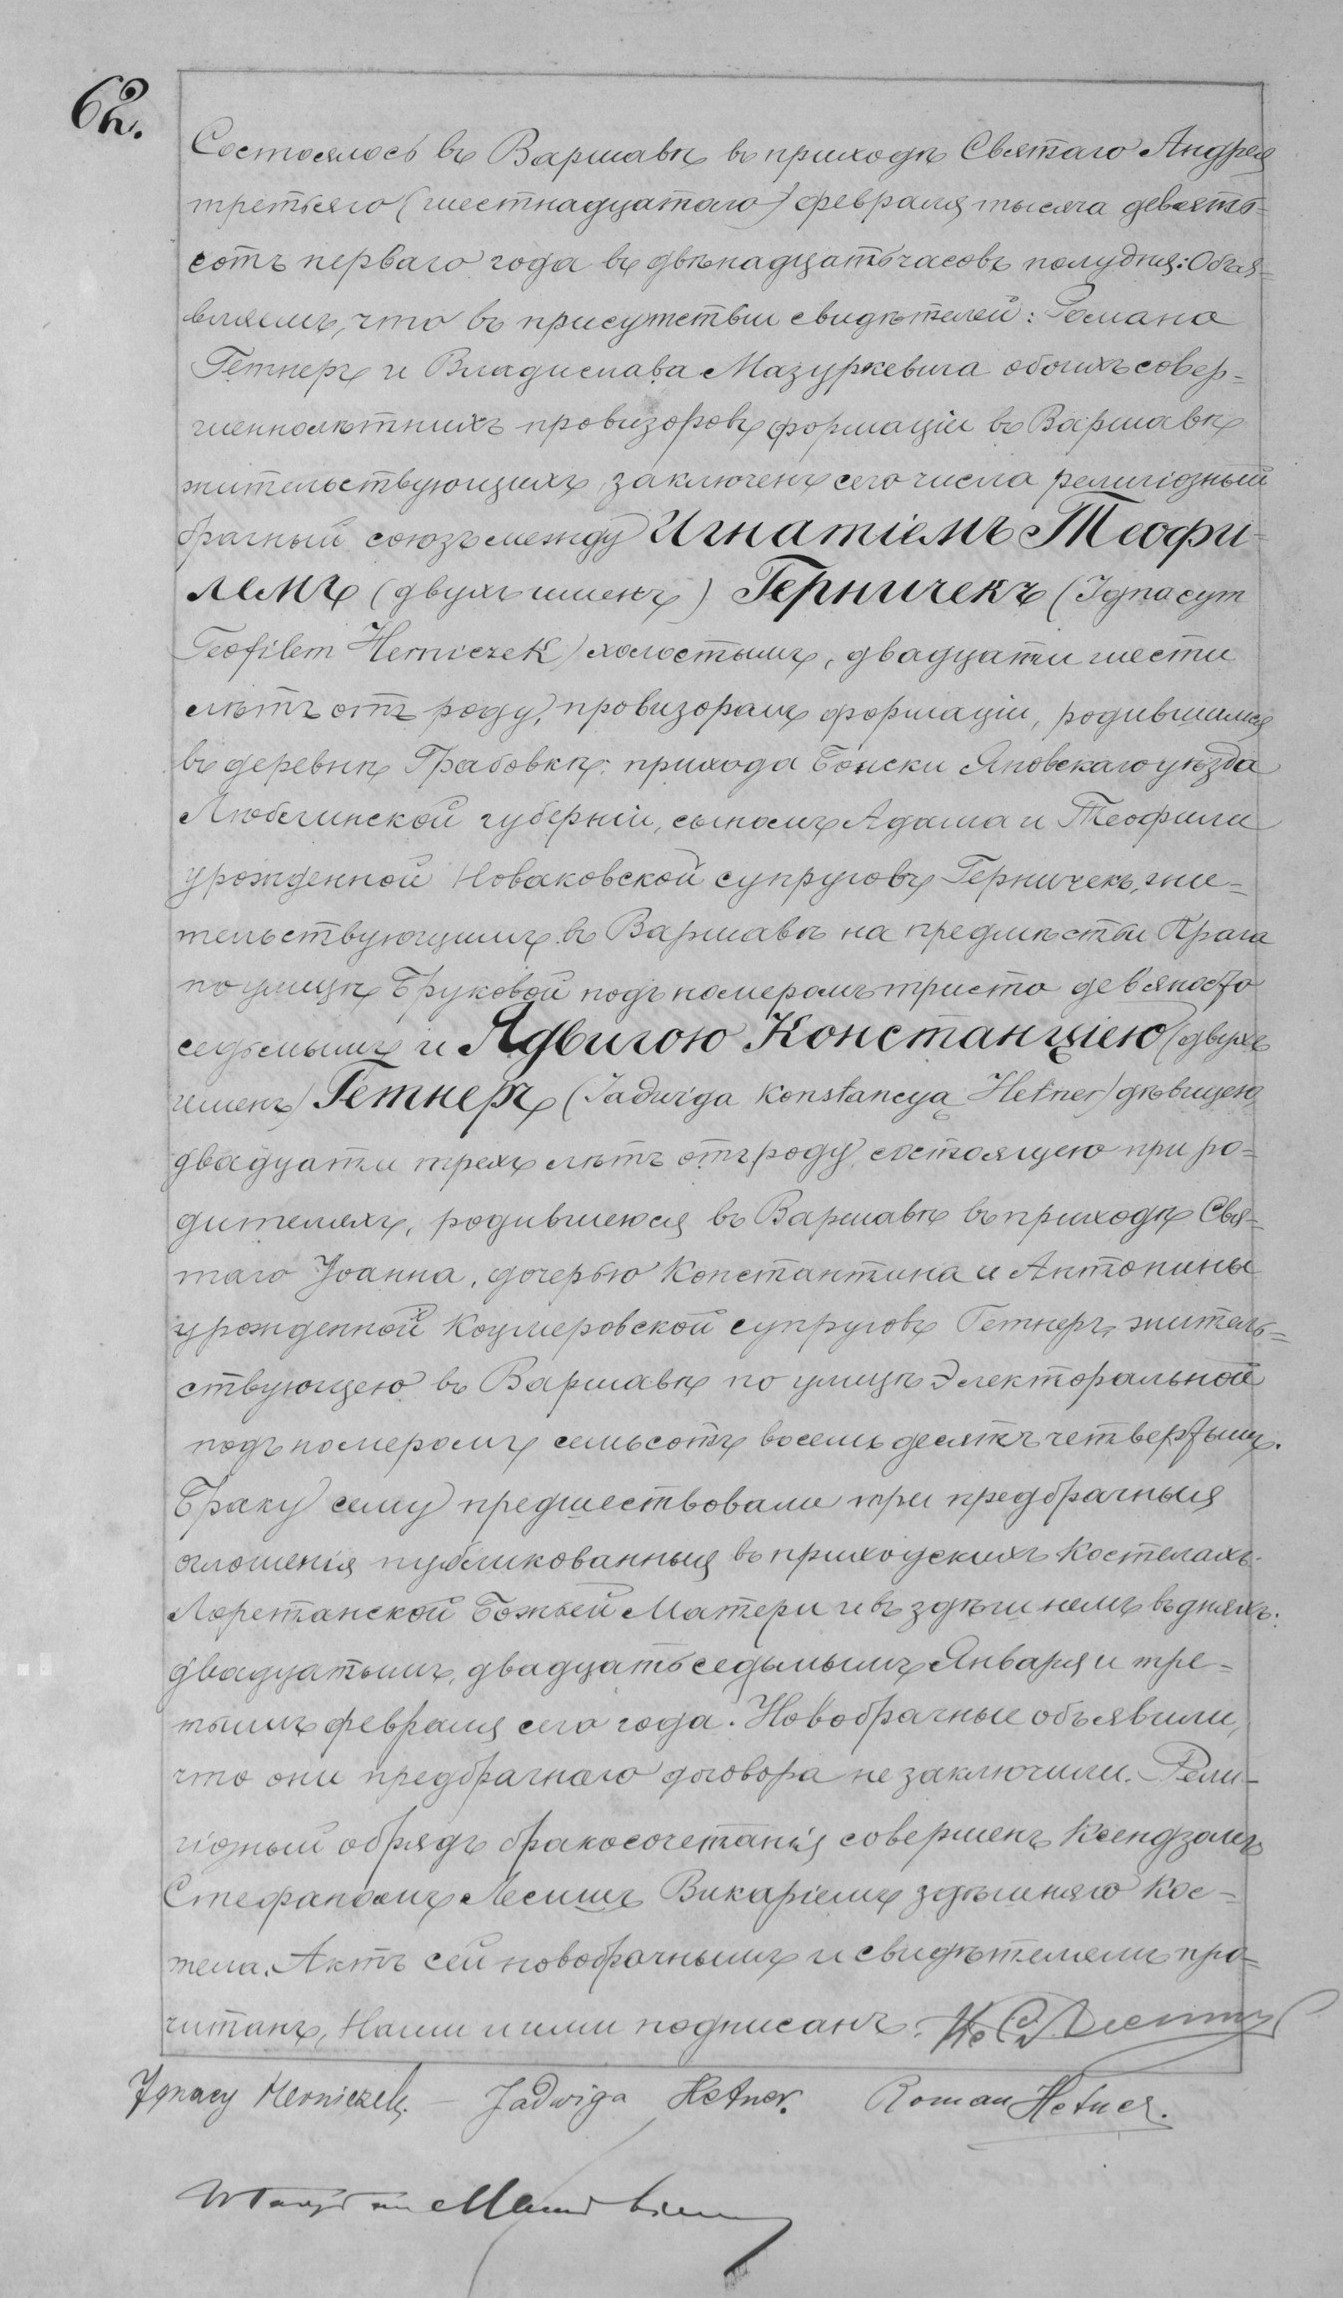 62.
Состоялось въ Варшавѣ въ приходѣ Святаго Андрея
третьяго (шестнадцатаго) февраля тысяча девять-
сотъ перваго года въ двѣнадцать часовъ полудня: Объя-
вляемъ, что въ присутствіи свидѣтелей: Романа
Гетнеръ и Владислава Мазуркевича обоихъ совер-
шеннолѣтнихъ провизоровъ формаціи въ Варшавѣ
жительствующихъ, заключенъ сего числа религіозный
брачный союзъ между Игнатіемъ Теофи-
лемъ (двухъ именъ) Герничекъ (Ignacym
Teofilem Herniczek) холостымъ, двадцати шести
лѣтъ отъ роду, провизоромъ формаціи, родившимся
въ деревнѣ Грабовкѣ прихода Боиски Яновскаго уѣзда
Люблинской губерніи, сыномъ Адама и Теофили
урожденной Новаковской супруговъ Герничекъ, жи-
тельствующимъ въ Варшавѣ на предмѣстьи Прага
по улицѣ Бруковой подъ номеромъ триста девяносто
седьмымъ и Ядвигою Констанціею (двухъ
именъ) Гетнеръ (Jadwigą Konstancyą Hetner) дѣвицею
двадцати трехъ лѣтъ отъ роду, состоящею при ро-
дителяхъ, родившеюся въ Варшавѣ въ приходѣ Свя-
таго Іоанна, дочерью Константина и Антонины
урожденной Коцмеровской супруговъ Гетнеръ, житель-
ствующею въ Варшавѣ по улицѣ Электоральной
подъ номеромъ семьсотъ восемьдесятъ четвертымъ.
Браку сему предшествовали три предбрачныя
оглошенія публикованныя въ приходскихъ костелахъ:
Лоретанской Божьей Матери и въ здѣшнемъ въ дняхъ:
двадцатымъ, двадцать седьмымъ Января и тре-
тьимъ февраля сего года. Новобрачные объявили,
что они предбрачнаго договора не заключили. Рели-
гіозный обрядъ бракосочетанія совершенъ Ксендзомъ
Стефаномъ Лесишъ Викаріемъ здѣшняго кос-
тела. Актъ сей новобрачнымъ и свидѣтелямъ про-
читанъ, Нами и ими подписанъ.
Ignacy Herniczek. – Jadwiga Hetner. Roman Hetner.